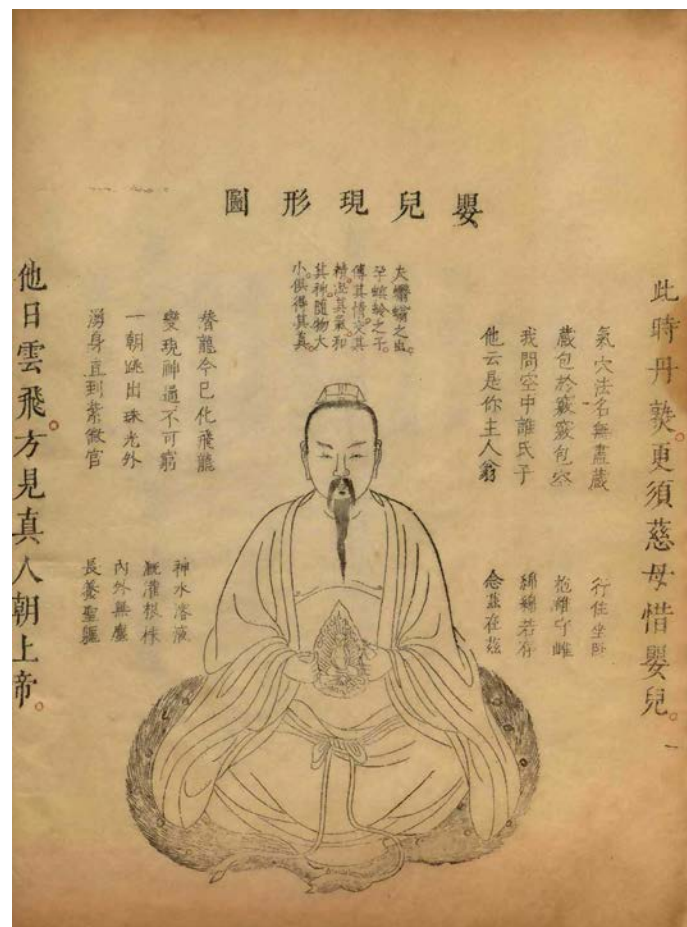 嬰兒現形圖
此時丹熟。更須慈母惜嬰兒。
氣穴法名無盡藏
藏包於竅竅包空
我問空中誰氏子
他云是你主人翁
行住坐臥
抱雄守雌
綿綿若存
念茲在茲
夫蠮螉之虫。
孕螟蛉之子。
傳其情。交其
精。混其氣。和
其神。隨物大
小。俱得其真。
潛龍今已化飛龍
變現神通不可窮
一朝跳出珠光外
湧身直到紫微宮
神水溶液
溉灌根株
內外無塵
長養聖軀
他日雲飛。方見真人朝上帝。